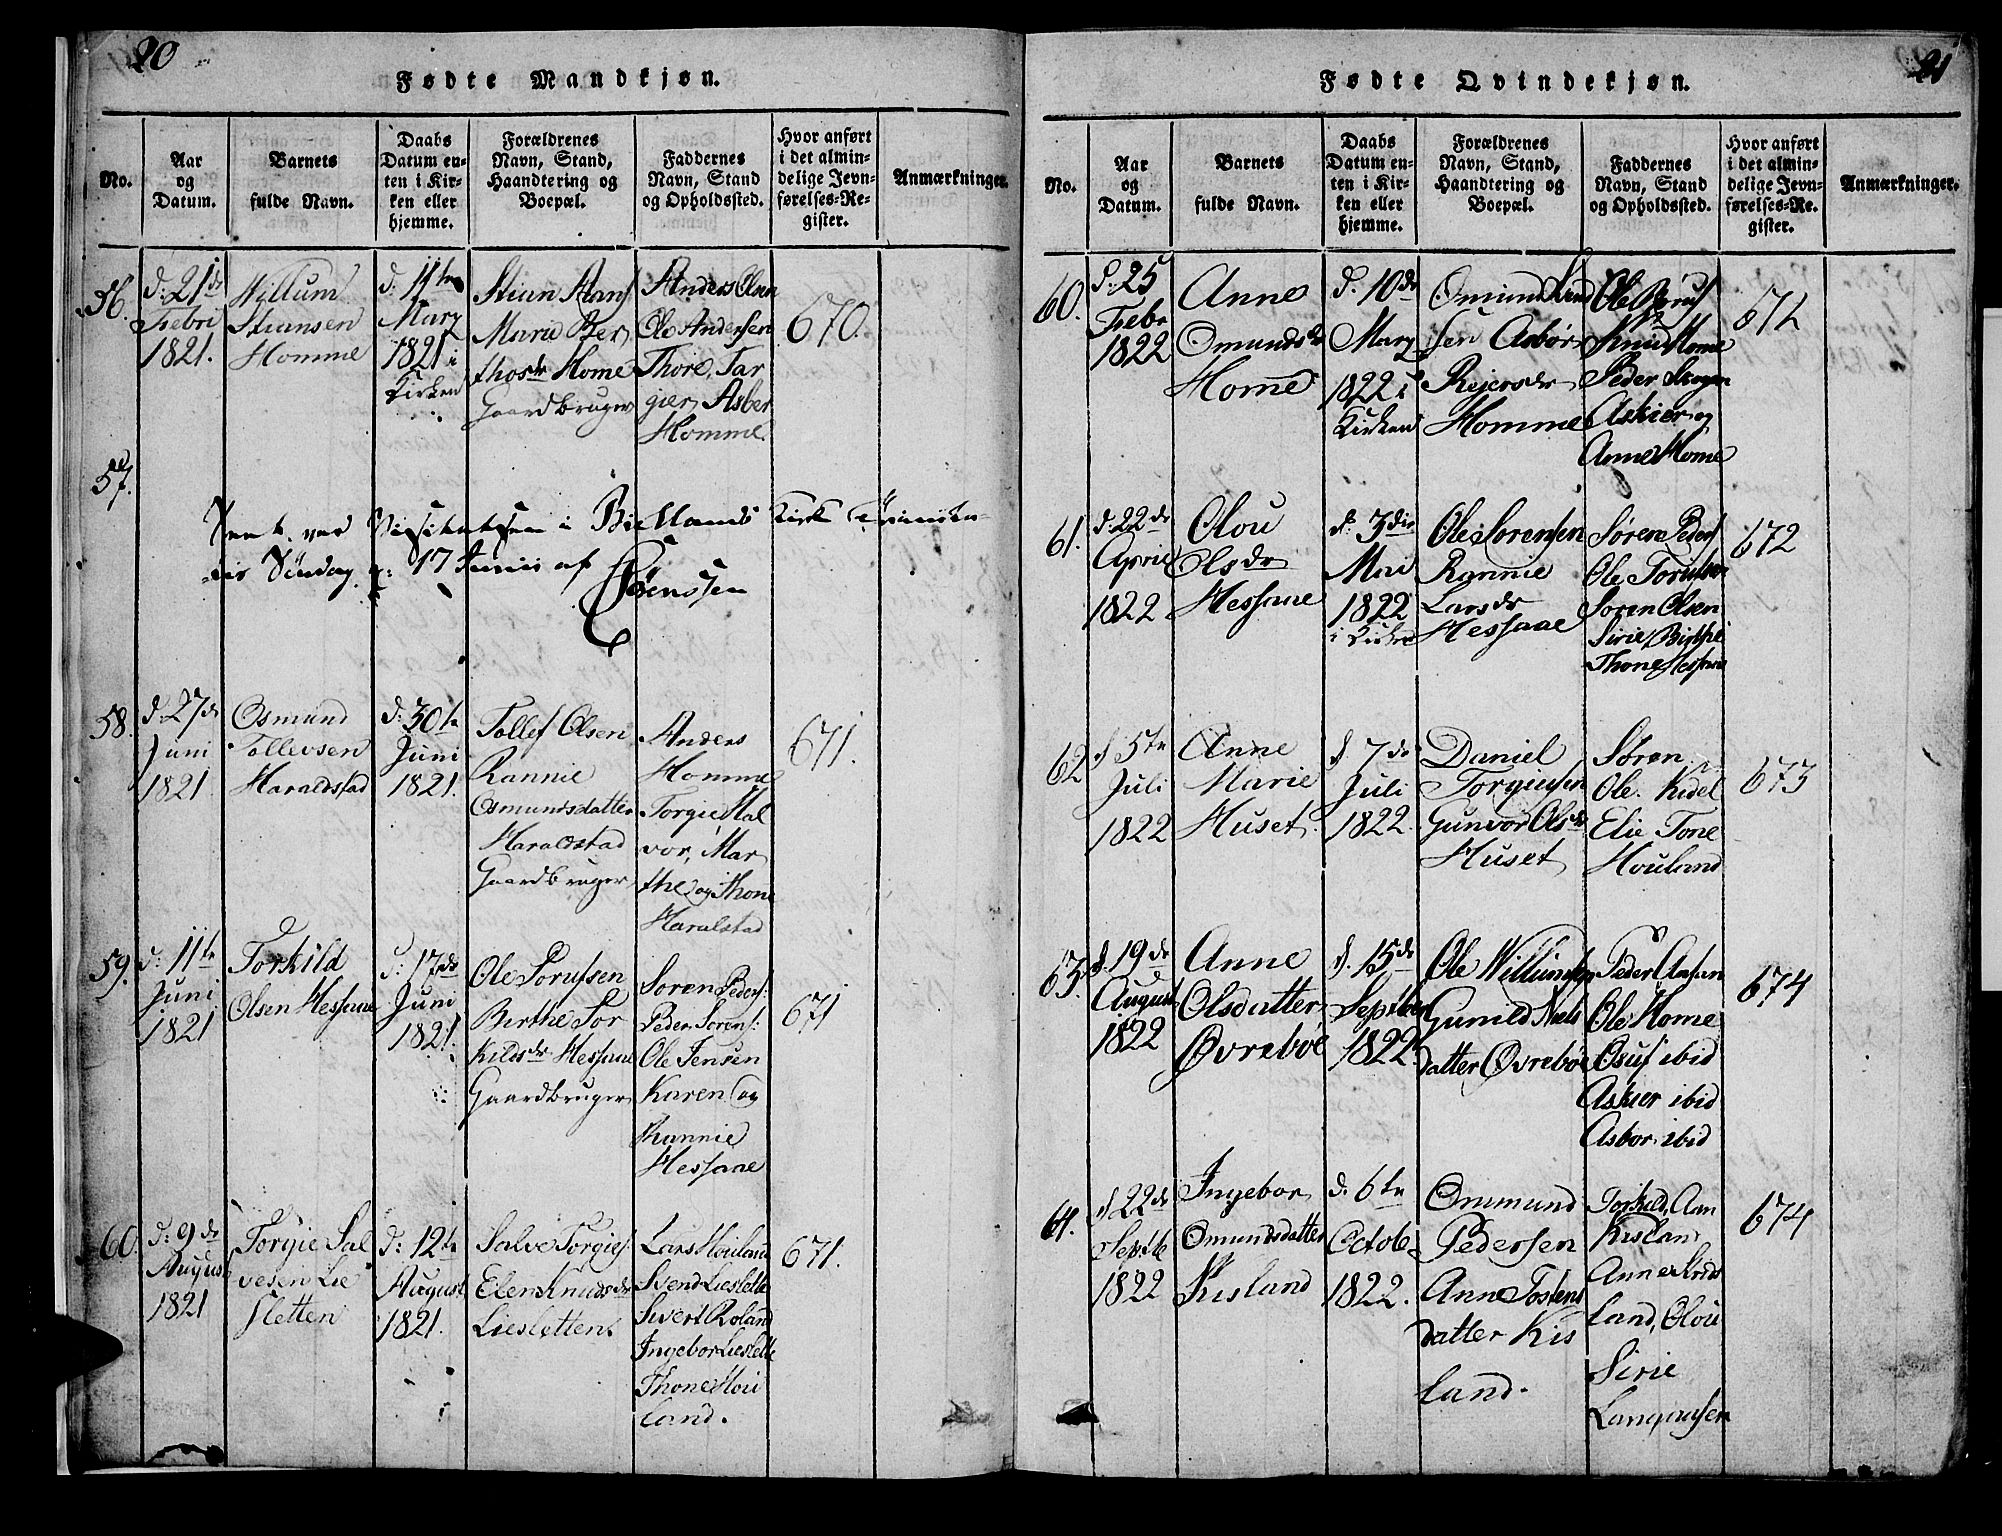 20
Fødte Mandkjøn.
No.
Aar
og
Datum.
Barnets
fulde Navn.
Daabs
Datum en-
ten i Kir-
ken eller
hjemme.
Forældrenes
Navn, Stand,
Haandtering og
Boepæl.
Faddernes
Navn, Stand
og Opholdssted.
Hvor anført
i det almin-
delige Jevn-
førelses-Re-
gister.
Anmærkninger.
56.
d: 21de
Febri
1821.
Willum
Stiansen
Homme
d. 11te
Marg
1821 i
Kirken
Stian Aans
Marie Ber
thosdr Home
Gaardbruger
Anders Olsen
Ole Andersen
Thore, Tar
gier, Asber
Homme.
670.
57.
Seet ved Visitatsen i Biellands Kirke
Søndag d: 17 Junii af
Sørenssen
58.
d. 27de
Juni
1821.
Osmund
Tollevsen
Haraldstad
d: 30te
Juni
1821.
Tollef Olsen
Rannie
Osmundsdatter
Haraldstad
Gaardbruger
Anders
Homme
Torgie Hal
vor, Mar
the og Thone
Haralstad
671.
59.
d: 11te
Juni
1821
Torkild
Olsen Hessaae
d: 17de
Juni
1821.
Ole Torussen
Birthe Tor
kildsdr Hessaae
Gaardbruger
Soren Peders:
Peder Sorens:
Ole Jensen
Karen og
Rannie
Hessaae
671
60.
d: 9de
August
1821
Torgie Sal
vesen Lie
sletten
d: 12te
August
1821.
Salve Torgies:
Elen Knudsdr
Liesletten.
Lars Houland
Svend Lieslette
Sivert Roland
Ingebor Lieslette
Thone Hou
land.
671.
21
Fødte Qvindekjøn.
No.
Aar
og
Datum.
Barnets
fulde Navn.
Daabs
Datum en-
ten i Kir-
ken eller
hjemme.
Forældrenes
Navn, Stand,
Haandtering og
Boepæl.
Faddernes
Navn, Stand
og Opholdssted.
Hvor anført
i det almin-
delige Jevn-
førelses-Re-
gister.
Anmærkninger.
60.
d: 25
Febr
1822
Anne
Omundsdr
Home
d. 10de
Marg
1822 i
Kirken
Omund
sen Asbør
Reiersdr
Homme
Ole
Knud Home
Peder
Askier og
Anne Home
672
61.
d: 22de
April
1822
Olou
Olsdr
Hessaae
d: 3die
Mai
1822
i Kirken
Ole Sorensen
Rannie
Larsdr
Hessaae
Søren Peders
Ole Torussen
Soren Olsen
Sirie Birthe
Thone Hessaae
672
62
d 5te
Juli
1822
Anne
Marie
Huset.
d 7de
Juli
1822.
Daniel
Torgiusen
Gunvor Olsdr
Huset
Søren
Ole. Kidel
Elie Tone
Houland
673
63.
d. 19de
August
1822
Anne
Olsdatter
Øvrebøe
d. 15de
Septber
1822
Ole Willumsen
Gunild Niels
datter Øvrebøe
Peder Aasan
Ole Home
Osuf ibid
Askier ibid
Asbor. ibid
674
64.
d 22de
Septb
1822
Ingebor
Omundsdatter
Kisland
d. 6te
Octob
1822.
Ommund
Pedersen
Anne Tostens
datter Kis
land.
Torkild, Aan
Kisland
Anne Kiis
land, Olou
Sirie
674